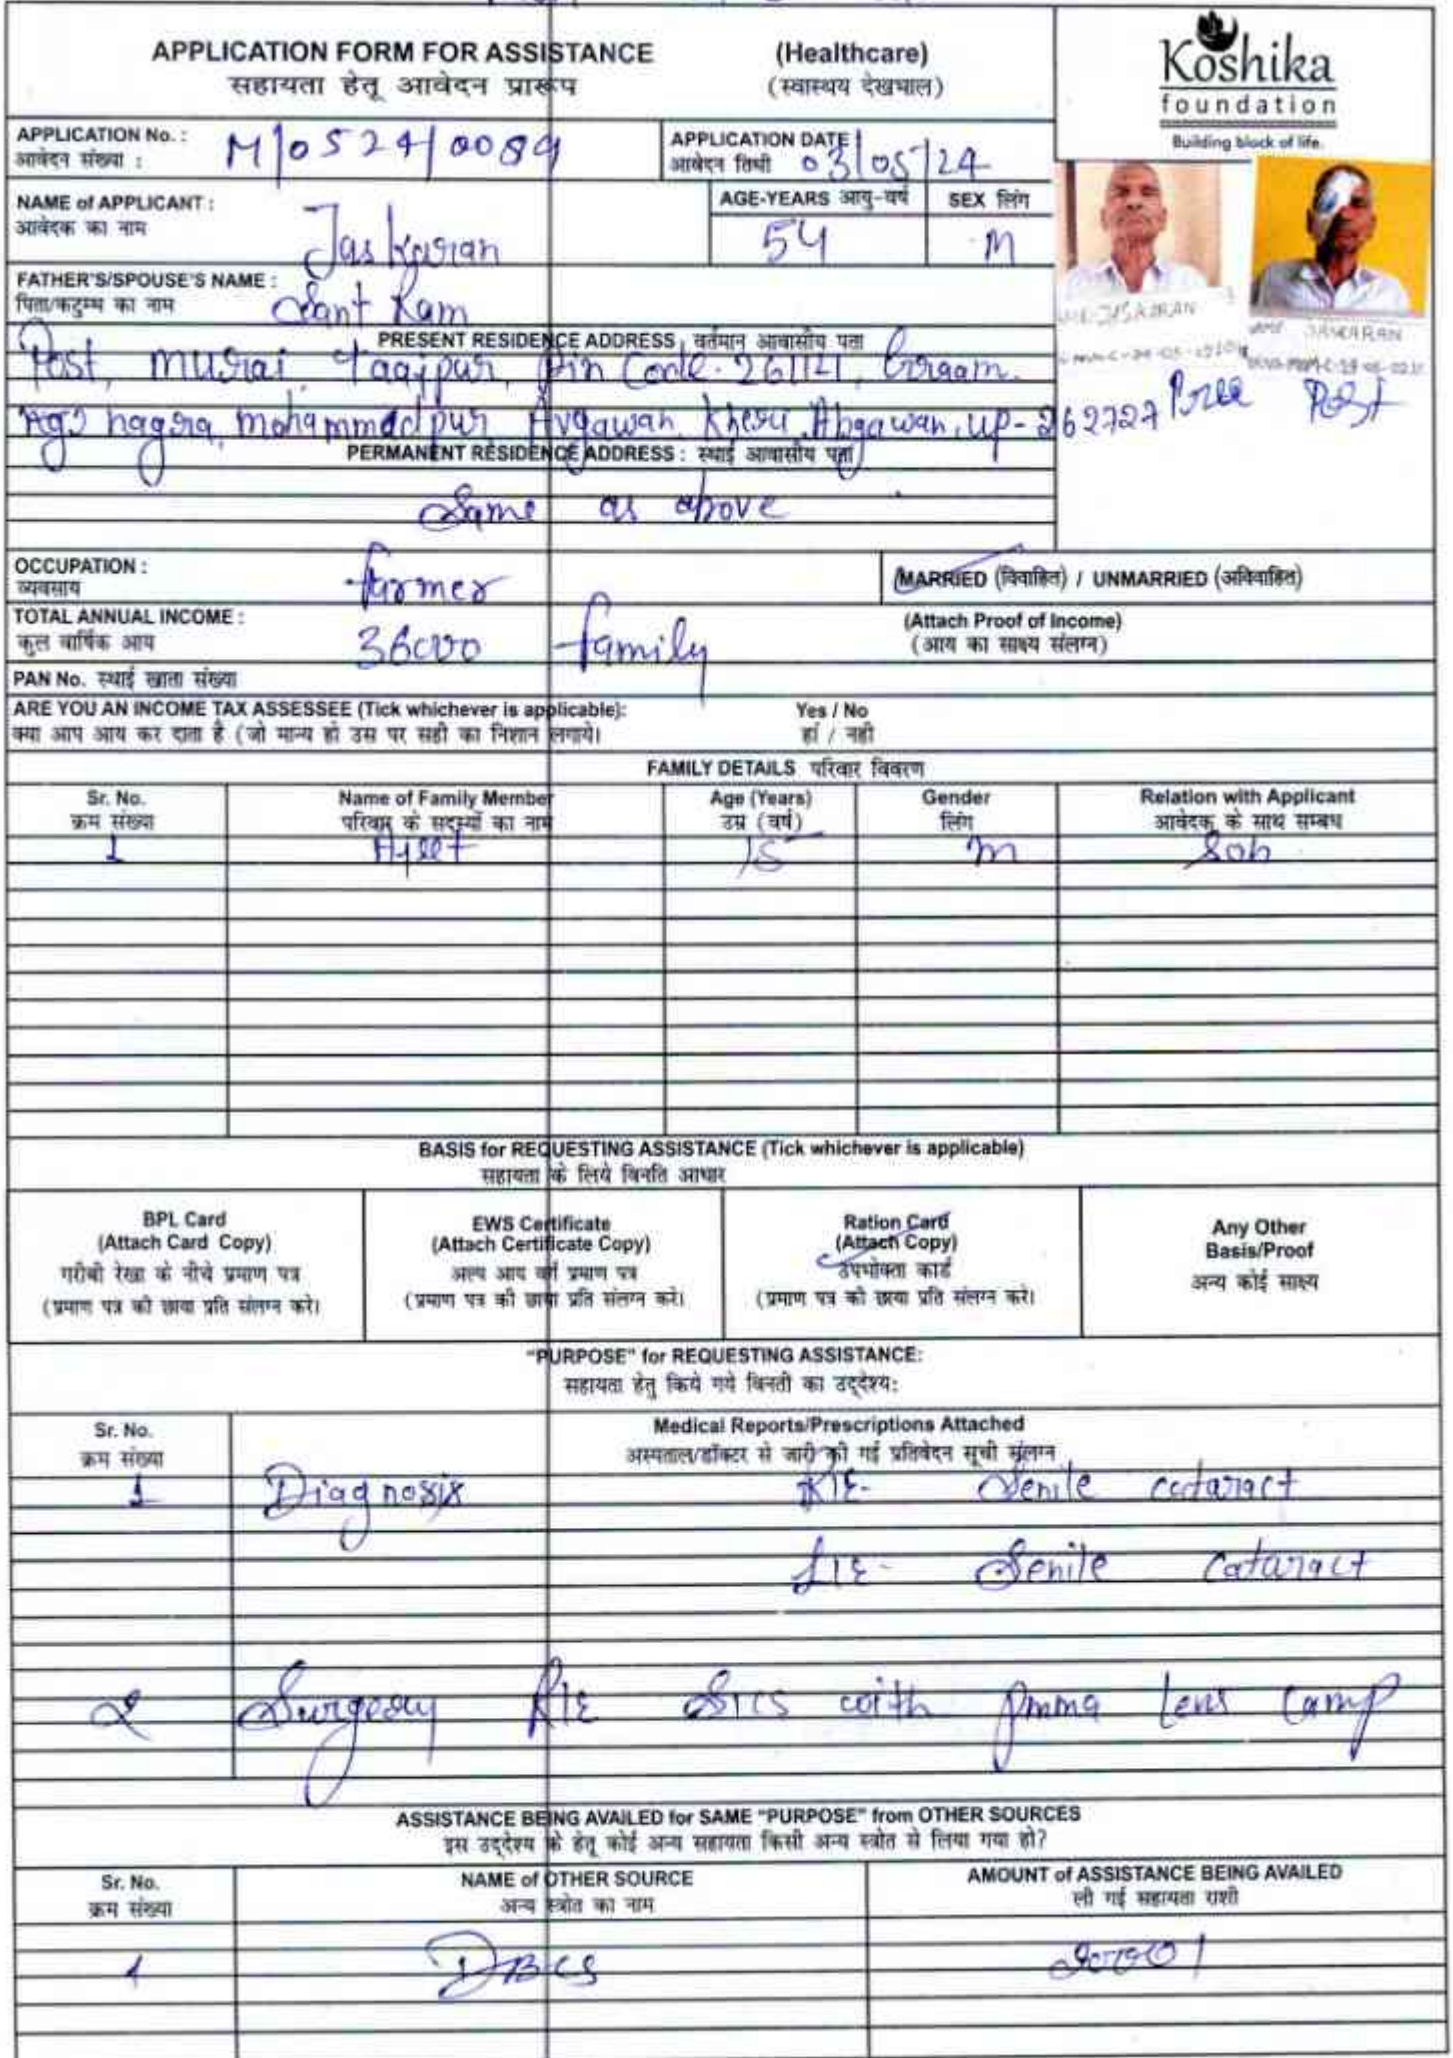 APPLICATION FORM FOR ASSISTANCE (Healthcare)
सहायता हेतू आवेदन प्रारूप (स्वास्थय देखभाल)
Koshika
foundation
Building block of life.
APPLICATION No. : M/0524/0089
आवेदन संख्या :
APPLICATION DATE 03/05/24
आवेदन तिथी
NAME of APPLICANT : Jaskaran
आवेदक का नाम
AGE-YEARS आयु-वर्ष 54
SEX लिंग M
FATHER'S/SPOUSE'S NAME : Sant Ram
पिता/कटुम्ब का नाम
PRESENT RESIDENCE ADDRESS वर्तमान आवासीय पता
Post, murai Taajpur, Pin Code. 261121, Graam.
nagra, mohammadpur Avgawan, Kheri, Abgawan, UP-262727
JASKARAN
NAME JASKARAN
Post
PERMANENT RESIDENCE ADDRESS : स्थाई आवासीय पता
Same as above
OCCUPATION : farmer
व्यवसाय
MARRIED (विवाहित) / UNMARRIED (अविवाहित)
TOTAL ANNUAL INCOME : 36000 family
कुल वार्षिक आय
(Attach Proof of Income)
(आय का साक्ष्य संलग्न)
PAN No. स्थाई खाता संख्या
ARE YOU AN INCOME TAX ASSESSEE (Tick whichever is applicable): Yes / No
क्या आप आय कर दाता है (जो मान्य हो उस पर सही का निशान लगाये। हां / नही
FAMILY DETAILS परिवार विवरण
Sr. No. Name of Family Member Age (Years) Gender Relation with Applicant
क्रम संख्या परिवार के सदस्यों का नाम उम्र (वर्ष) लिंग आवेदक के साथ सम्बध
1 Ajeet 15 m Son
BASIS for REQUESTING ASSISTANCE (Tick whichever is applicable)
सहायता के लिये विनति आधार
BPL Card
(Attach Card Copy)
गरीबी रेखा के नीचे प्रमाण पत्र
(प्रमाण पत्र की छाया प्रति संलग्न करे।
EWS Certificate
(Attach Certificate Copy)
अल्प आय वर्ग प्रमाण पत्र
(प्रमाण पत्र की छाया प्रति संलग्न करे।
Ration Card
(Attach Copy)
उपभोक्ता कार्ड
(प्रमाण पत्र की छाया प्रति संलग्न करे।
Any Other
Basis/Proof
अन्य कोई साक्ष्य
"PURPOSE" for REQUESTING ASSISTANCE:
सहायता हेतु किये गये विनती का उद्देश्य:
Sr. No. Medical Reports/Prescriptions Attached
क्रम संख्या अस्पताल/डॉक्टर से जारी की गई प्रतिवेदन सूची संलग्न
1 Diagnosix R/E- Senile cataract
L/E- Senile cataract
2 Surgery R/E SICS with pmma lens camp
ASSISTANCE BEING AVAILED for SAME "PURPOSE" from OTHER SOURCES
इस उद्देश्य के हेतू कोई अन्य सहायता किसी अन्य स्त्रोत से लिया गया हो?
Sr. No. NAME of OTHER SOURCE AMOUNT of ASSISTANCE BEING AVAILED
क्रम संख्या अन्य स्त्रोत का नाम ली गई सहायता राशी
1 DBCS